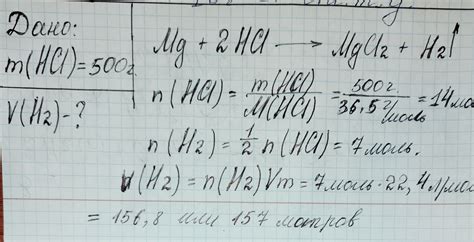 Дано:
m(HCl)=500г.
V(H2)-?
Mg + 2HCl → MgCl2 + H2↑
n(HCl) = m(HCl)/M(HCl) = 500г./36,5г/моль = 14мол
n(H2) = 1/2 n(HCl) = 7моль.
V(H2) = n(H2)Vm = 7моль·22,4л/мол
= 156,8 или 157 литров